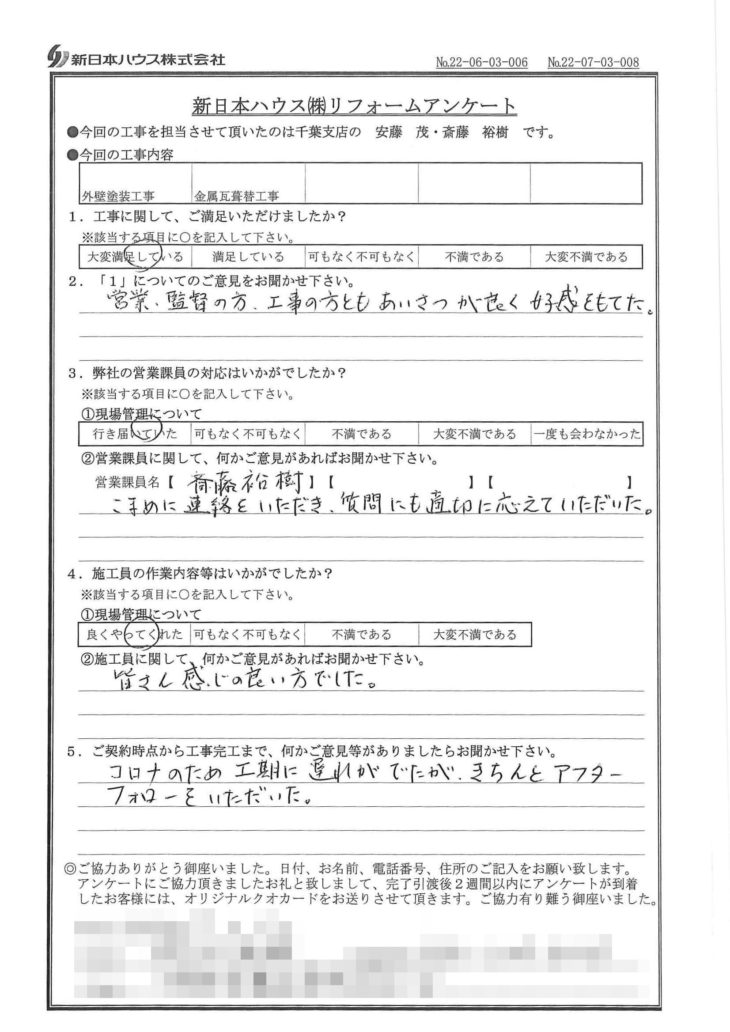 新日本ハウス株式会社
№22-06-03-006 №22-07-03-008
新日本ハウス㈱リフォームアンケート
●今回の工事を担当させて頂いたのは千葉支店の 安藤 茂・斎藤 裕樹 です。
●今回の工事内容
外壁塗装工事 金属瓦葺替工事
1．工事に関して、ご満足いただけましたか？
※該当する項目に○を記入して下さい。
大変満足している 満足している 可もなく不可もなく 不満である 大変不満である
2．「1」についてのご意見をお聞かせ下さい。
営業、監督の方、工事の方ともあいさつが良く好感をもてた。
3．弊社の営業課員の対応はいかがでしたか？
※該当する項目に○を記入して下さい。
①現場管理について
行き届いていた 可もなく不可もなく 不満である 大変不満である 一度も会わなかった
②営業課員に関して、何かご意見があればお聞かせ下さい。
営業課員名【 斎藤裕樹 】【 】【 】
こまめに連絡をいただき、質問にも適切に応えていただいた。
4．施工員の作業内容等はいかがでしたか？
※該当する項目に○を記入して下さい。
①現場管理について
良くやってくれた 可もなく不可もなく 不満である 大変不満である
②施工員に関して、何かご意見があればお聞かせ下さい。
皆さん感じの良い方でした。
5．ご契約時点から工事完工まで、何かご意見等がありましたらお聞かせ下さい。
コロナのため工期に遅れがでたが、きちんとアフター
フォローをいただいた。
◎ご協力ありがとう御座いました。日付、お名前、電話番号、住所のご記入をお願い致します。
アンケートにご協力頂きましたお礼と致しまして、完了引渡後２週間以内にアンケートが到着
したお客様には、オリジナルクオカードをお送りさせて頂きます。ご協力有り難う御座いました。